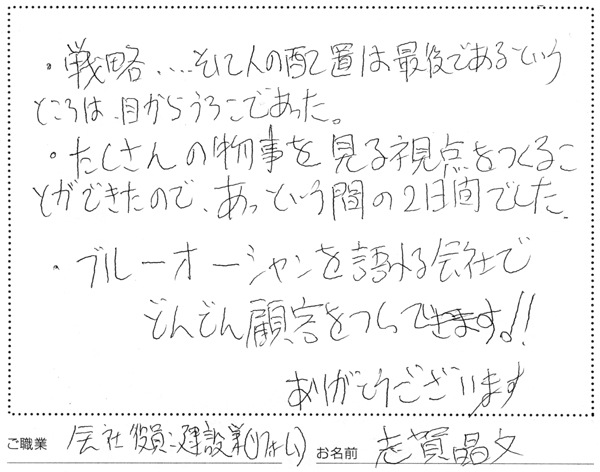 ・戦略、…そして人の配置は最後であるという
ところは、目からうろこであった。
・たくさんの物事を見る視点をつくるこ
とができたので、あっという間の2日間でした。
・ブルーオーシャンを語れる会社で
どんどん顧客をつくってきます!!
ありがとうございます
ご職業 会社役員:建設業(リフォーム) お名前 志賀晶文